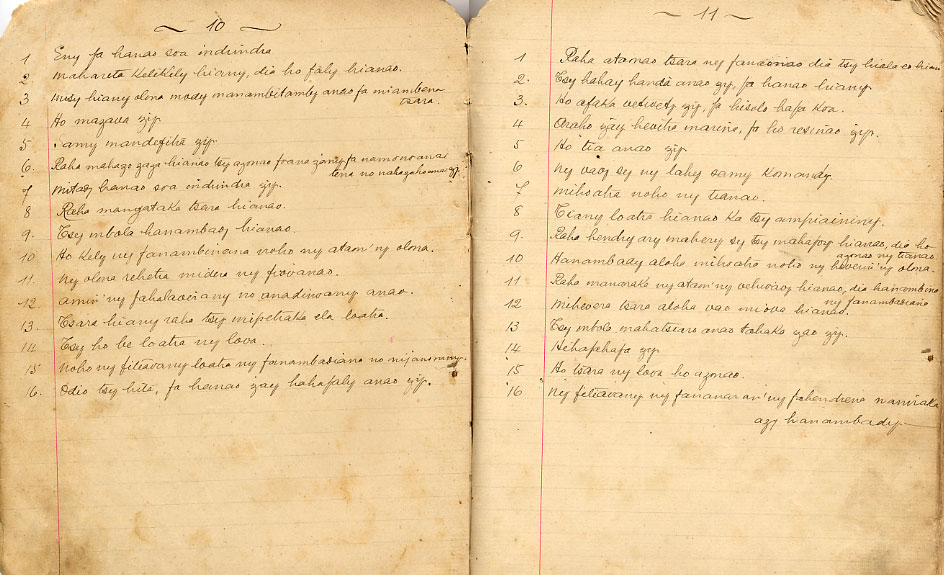 10
1 Eny fa hanao soa indrindra
2 Mahareta kelikely hiany, dia ho faly hianao.
3 Misy hiany olona mody manambitamby anao fa miambena
tsara.
4 Ho mazava izy.
5 Samy mandefitra izy
6. Raha mahazo zaza hianao tsy azonao
7 hanao soa indrindra izy.
8 Raha mangataka tsara hianao.
9. Tsy mbola hanambady hianao.
10 Ho kely ny fanambiniana noho ny atam' ny olona.
11 Ny olona rehetra midera ny fiovanao.
12 amin' ny no anadinoany anao.
13. Tsara hiany raha tsy mipetraka ela loatra.
14 Tsy ho be loatra ny lova.
15 Noho ny fitiavany loatra ny fanambadiana no
16. Odio tsy hita, fa hanao zay hahafaly anao izy.
11
1 Raha ataonao tsara ny dia tsy hiala eo hianao
2. Tsy hahay handa anao izy, fa hanao hiany.
3. Ho afaka vetivety izy, fa hisolo hafa koa.
4 Araho zay hevitra marina, fa ho resinao izy.
5 Ho tia anao izy
6 Ny vavy sy ny lahy samy
7 mihoatra noho ny tianao.
8 Tiany loatra hianao ka tsy ampiaininy.
9. Raha hendry ary mahery sy tsy mahafoy hianao, dia ho
azonao ny tianao.
10 Hanambady aloha mihoatra noho ny heverin' ny olona.
11 Raha manaraka ny atam' ny hianao, dia hanambina
ny fanambadiana
12 tsara aloha vao miova hianao.
13 Tsy mbola mahatsiaro anao tahaka zao izy.
14 Hihafahafa izy
15 Ho tsara ny lova ho azonao.
16 Ny fitiavany ny fananar' ny fahendrena
azy hanambady.